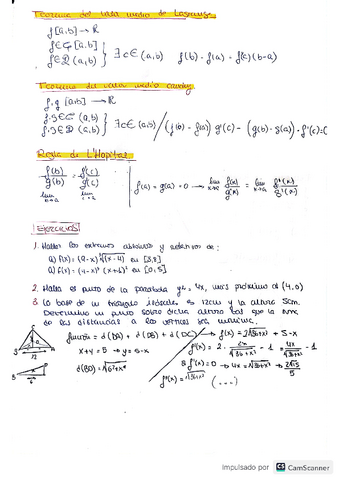 Teorema del valor medio de Lagrange
f[a,b] → R
f∈C [a,b]
f∈D (a,b) } ∃ c∈(a,b) f(b)-f(a) = f'(c)(b-a)
Teorema del valor medio cauchy
f,g [a,b] → R
f,g∈C (a,b)
f,g∈D (a,b) } ∃c∈(a,b) / (f(b)-f(a)) g'(c) - (g(b)-g(a)) · f'(c)=0
Regla de L'Hopital
f(b)/g(b) = f'(c)/g'(c)
f(a) = g(a) = 0 → lim f(x)/g(x) = lim f'(x)/g'(x)
EJERCICIOS
1. Hallar los extremos absolutos y relativos de:
2. Halla el punto de la parabola y², 4x, mas próximo al (4,0)
3. La base de un triangulo isósceles es 12cm y la altura 5cm.
Determina un punto sobre dicha altura tal que la suma
de las distancias a los vertices sea mínima.
f(punto) = d(DA) + d(DB) + d(DC) → f(x) = 2√36+x² + 5-x
x+y = 5 → y = 5-x
f'(x) = 2 · 2x/√36+x² - 1 = 4x/√36+x² - 1
d(BD) = √6²+x²
f'(x)=0 → 4x = √36+x² → 2√15/5
(...)
Impulsado por CS CamScanner